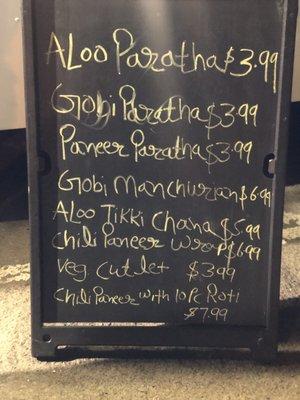 Aloo Paratha $3.99
Gobi Paratha $3.99
Paneer Paratha $3.99
Gobi Manchurian $6.99
Aloo Tikki Chana $5.99
Chili Paneer Wrap $6.99
Veg Cutlet $3.99
Chili Paneer with 10 Pc Roti
$7.99